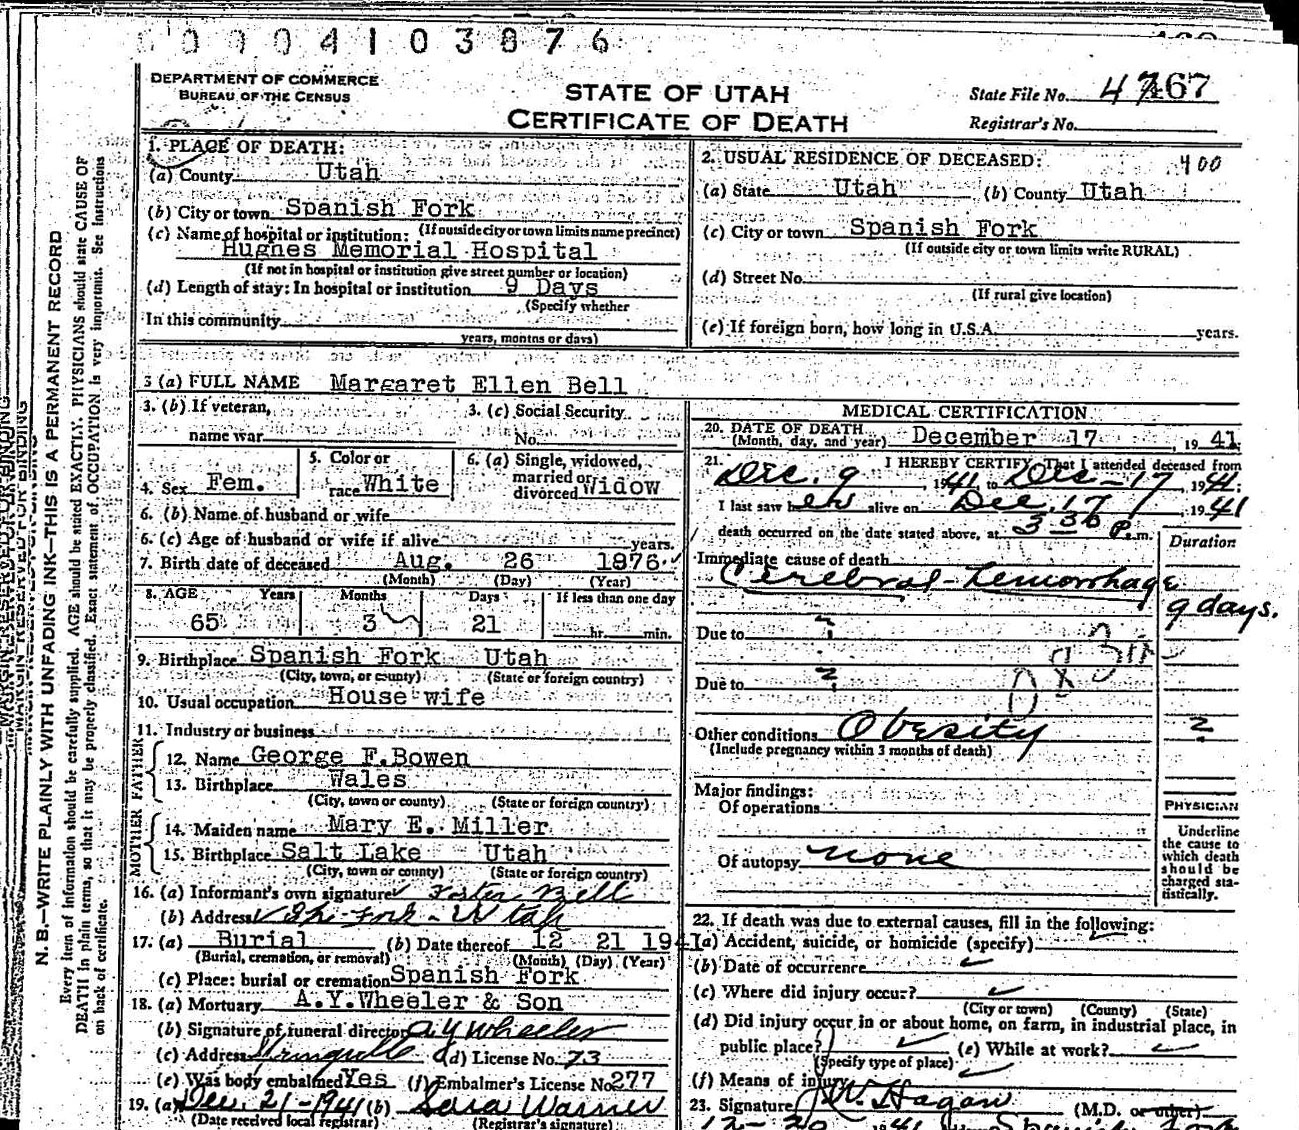 0004103876
DEPARTMENT OF COMMERCE
BUREAU OF THE CENSUS
STATE OF UTAH
CERTIFICATE OF DEATH
State File No. 4 167
Registrar's No.
1. PLACE OF DEATH:
(a) County Utah
(b) City or town Spanish Fork
(If outside city or town limits name precinct)
(c) Name of hospital or institution:
Hughes Memorial Hospital
(If not in hospital or institution give street number or location)
(d) Length of stay: In hospital or institution 9 Days
(Specify whether
In this community
years, months or days)
2. USUAL RESIDENCE OF DECEASED: 400
(a) State Utah (b) County Utah
(c) City or town Spanish Fork
(If outside city or town limits write RURAL)
(d) Street No.
(If rural give location)
(e) If foreign born, how long in U.S.A. years.
3 (a) FULL NAME Margaret Ellen Bell
3. (b) If veteran,
name war
3. (c) Social Security
No.
4. Sex Fem.
5. Color or
race White
6. (a) Single, widowed,
married or
divorced Widow
6. (b) Name of husband or wife
6. (c) Age of husband or wife if alive years.
7. Birth date of deceased Aug. 26 1876
(Month) (Day) (Year)
8. AGE Years Months Days If less than one day
65 3 21 hr. min.
9. Birthplace Spanish Fork Utah
(City, town, or county) (State or foreign country)
10. Usual occupation House wife
11. Industry or business
FATHER
12. Name George F. Bowen
13. Birthplace Wales
(City, town or county) (State or foreign country)
MOTHER
14. Maiden name Mary E. Miller
15. Birthplace Salt Lake Utah
(City, town or county) (State or foreign country)
16. (a) Informant's own signature Foster Bell
(b) Address Sp. Fork - Utah
17. (a) Burial (b) Date thereof 12 21 1941
(Burial, cremation, or removal) (Month) (Day) (Year)
(c) Place: burial or cremation Spanish Fork
18. (a) Mortuary A.Y.Wheeler & Son
(b) Signature of funeral director A Y Wheeler
(c) Address Springville (d) License No. 73
(e) Was body embalmed Yes (f) Embalmer's License No 277
19. (a) Dec. 21-1941 (b) Sara Warner
(Date received local registrar) (Registrar's signature)
MEDICAL CERTIFICATION
20. DATE OF DEATH
(Month, day, and year) December 17 1941
21. I HEREBY CERTIFY, That I attended deceased from
Dec. 9, 1941 to Dec - 17, 1941;
I last saw her alive on Dec. 17, 1941
death occurred on the date stated above, at 3 30 P.m.
Duration
Immediate cause of death
Cerebral-hemorrhage
9 days.
Due to ?
Due to ?
Other conditions Obesity ?
(Include pregnancy within 3 months of death)
Major findings:
Of operations
Of autopsy none
PHYSICIAN
Underline
the cause to
which death
should be
charged sta-
tistically.
22. If death was due to external causes, fill in the following:
(a) Accident, suicide, or homicide (specify)
(b) Date of occurrence
(c) Where did injury occur?
(City or town) (County) (State)
(d) Did injury occur in or about home, on farm, in industrial place, in
public place? (e) While at work?
(Specify type of place)
(f) Means of injury
23. Signature W. Hagan (M.D. or other)
MARGIN RESERVED FOR BINDING
N. B.—WRITE PLAINLY WITH UNFADING INK—THIS IS A PERMANENT RECORD
Every item of information should be carefully supplied. AGE should be stated EXACTLY. PHYSICIANS should state CAUSE OF
DEATH in plain terms, so that it may be properly classified. Exact statement of OCCUPATION is very important. See Instructions
on back of certificate.